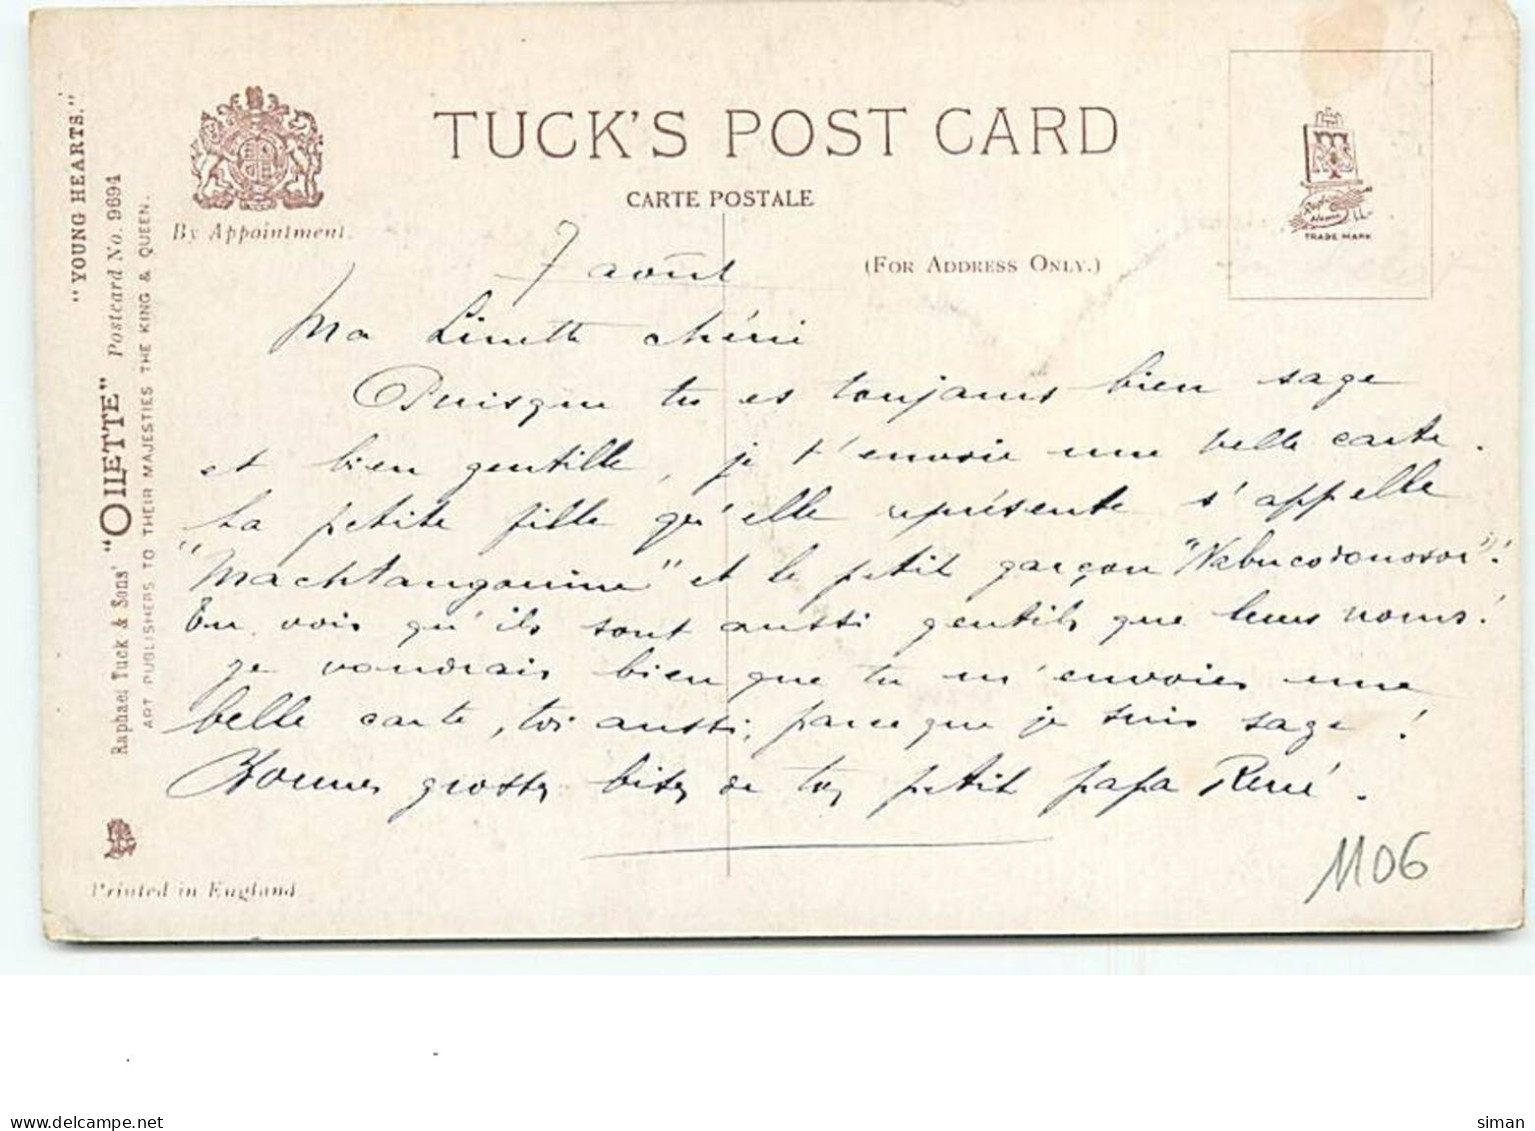 "YOUNG HEARTS."
Raphael Tuck & Sons' "OILETTE" Postcard No. 9694
ART PUBLISHERS TO THEIR MAJESTIES THE KING & QUEEN.
By Appointment.
TUCK'S POST CARD
CARTE POSTALE
(FOR ADDRESS ONLY.)
TRADE MARK
7 août
Ma Linette chérie
Puisque tu es toujours bien sage
et bien gentille, je t'envoie une belle carte.
La petite fille qu'elle représente s'appelle
"Machtangouine" et le petit garçon "Nabucodonosor"!
Tu vois qu'ils sont aussi gentils que leurs noms!
je voudrais bien que tu m'envoies une
belle carte, toi aussi, parce que je suis sage!
Bonnes grosses bises de ton petit papa René.
1106
Printed in England
delcampe.net
siman